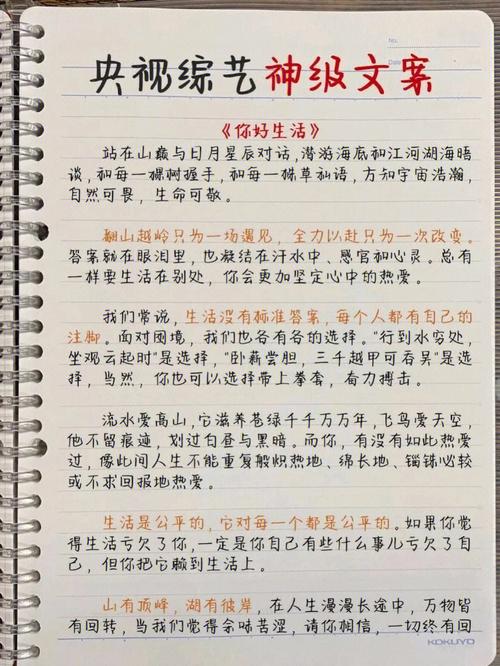 No.
Date
央视综艺神级文案
《你好生活》
站在山巅与日月星辰对话，潜游海底和江河湖海晤
谈，和每一棵树握手，和每一株草私语，方知宇宙浩瀚，
自然可畏，生命可敬。
翻山越岭只为一场遇见，全力以赴只为一次改变。
答案就在眼泪里，也凝结在汗水中、感官和心灵。总有
一样要生活在别处，你会更加坚定心中的热爱。
我们常说，生活没有标准答案，每个人都有自己的
注脚。面对困境，我们也各有各的选择。"行到水穷处，
坐观云起时"是选择，"卧薪尝胆，三千越甲可吞吴"是选
择，当然，你也可以选择带上拳套，奋力搏击。
流水爱高山，它滋养苍绿千千万万年，飞鸟爱天空，
他不留痕迹，划过白昼与黑暗。而你，有没有如此热爱
过，像此间人生不能重复般炽热地、绵长地、锱铢必较
或不求回报地热爱。
生活是公平的，它对每一个都是公平的。如果你觉
得生活亏欠了你，一定是你自己有些什么事儿亏欠了自
己，但你把它赖到生活上。
山有顶峰，湖有彼岸，在人生漫漫长途中，万物皆
有回转，当我们觉得余味苦涩，请你相信，一切终有回
KOKUYO